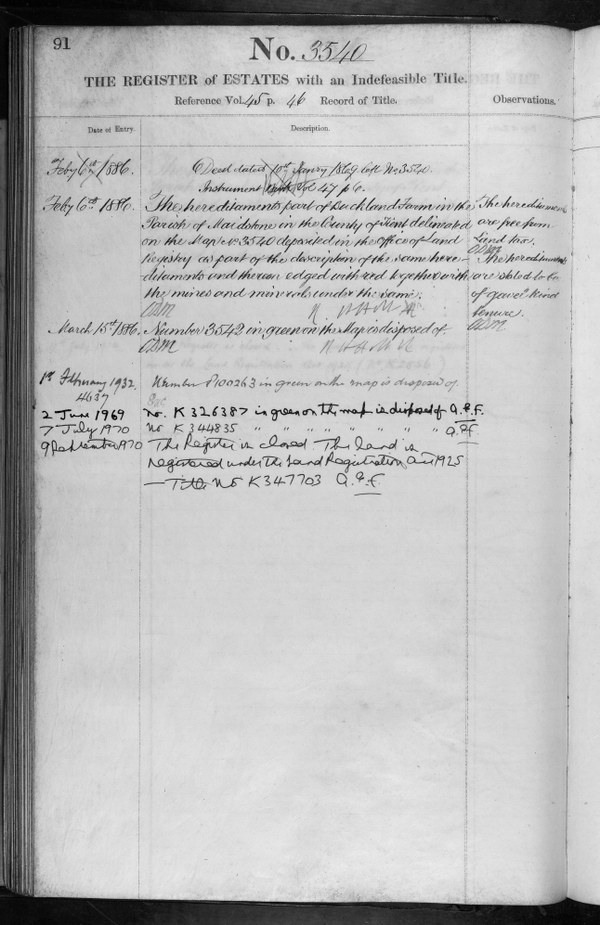 91
No. 3540
THE REGISTER of ESTATES with an Indefeasible Title.
Reference Vol. 45 p. 46 Record of Title.
Observations.
Date of Entry.
Description.
Feby 6th 1886.
Deed dated 10th Janry 1869 Cert No. 3540.
Instrument Vol 47 p 6.
Feby 6th 1886.
The hereditaments part of Buckland Farm in the
Parish of Maidstone in the County of Kent delineated
on the Map No. 3540 deposited in the Office of Land
Registry as part of the description of the same here-
ditaments and thereon edged with red together with
the mines and minerals under the same.
The hereditaments
are free from
Land tax.
The hereditaments
are stated to be
of gavel kind
tenure.
March 15th 1886.
Number 3542 in green on the Map is disposed of
1st February 1932.
4637
Number P100263 in green on the map is disposed of
2 June 1969
No. K 326387 in green on the map is disposed of A.P.F.
7 July 1970
No K 344835 " " " " " " " " A.P.F.
9 September 1970
The Register is closed. The land is
registered under the Land Registration Act 1925
— Title No K347703 A.P.F.